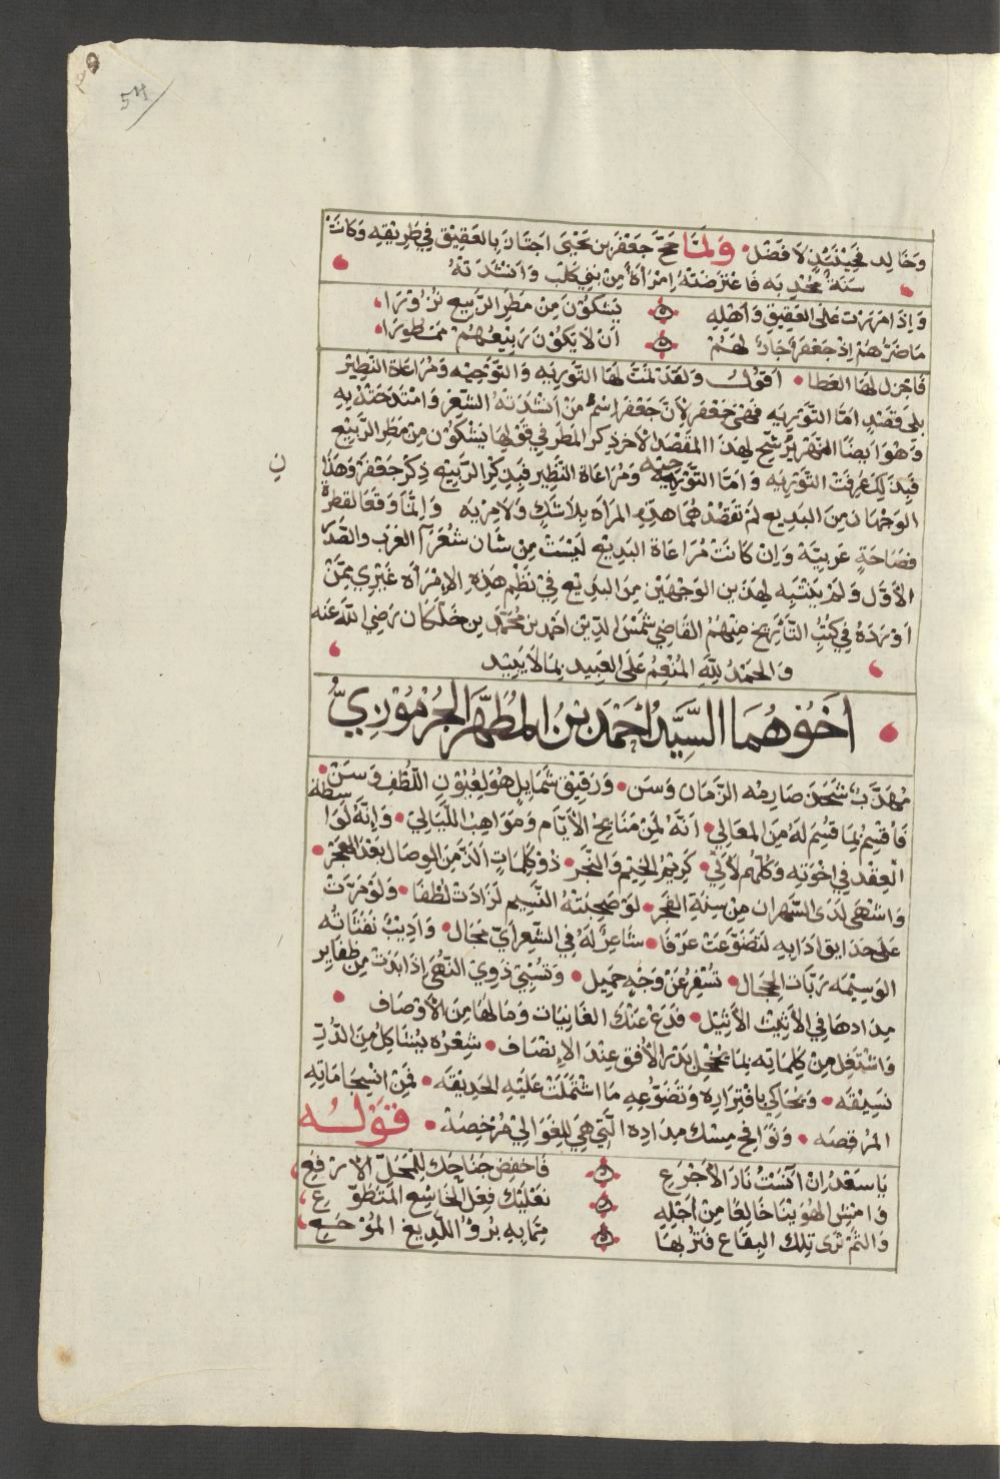 54
وخالد فحينئذ لا فضل ولما حج جعفر بن يحيى اجتاز بالعقيق في طريقه وكانت
سنة مجدبه فاعترضته امرأة من بني كلب وانشدته
واذا مررت على العقيق واهله يشكون من مطر الربيع نزورا
ما ضرهم اذ جعفر جاز لهم ان لا يكون ربيعهم ممطورا
فاجزل لها العطا اقول ولقد تمت لها التوريه والتوجيه ومراعاة النظير
بلى قصد اما التوريه فهي جعفر لان جعفر اسم من انشدته الشعر وامتدحته به
وهو ايضا النهر يرشح لهذا المقصد الاخر ذكر المطر في قولها يشكون من مطر الربيع
فبذلك عرفت التوريه واما التوجيه ومراعاة النظير فبذكر الربيع ذكر جعفر وهذا
الوجهان من البديع لم تقصدهما هذه المراه بلا شك ولا مريه وانما وقعا لقطرة
فصاحة عربية وان كانت مراعاة البديع ليست من شان شعراء العرب والصدر
الاول ولم ينتبه لهذين الوجهين من البديع في نظم هذه الامرأة غيري ممن
اورده في كتب التأريخ منهم القاضي شمس الدين احمد بن محمد بن خلكان رضي الله عنه
والحمد لله المنعم على العبيد بما لا يبيد
اخوهما السيد احمد بن المطهر الجرموزي
مهذب شحذ صارمه الزمان وسن ورقيق شمايل هو لعيون اللطف وسن
فاقسم لما قسم له من المعالي انه لمن منايح الأيام ومواهب الليالي وانه لواسطة
العقد في اخوته وكلهم لآلي كريم الخيم والنجر ذو كلمات الذ من الوصال بعد الهجر
واشهى لدى السهران من سنة الفجر لو صحبته النسيم لزادت لطفا ولو مرت
على حدايق ادابه لتضوعت عرفا شاعر له في الشعر اي مجال واديب نفثاته
الوسيمه ربات الحجال تسفر عن وجه جميل وتسبي ذوي التقى اذا بدت من ظفاير
مدادها في الأثيث الأثيل فدع عنك الغانيات وما لها من الأوصاف
واشتغل من كلماته بما يخجل بدر الأفق عند الانصاف شعره يشاكل من الدر
نسيقه ويحاكي بافتراره وتضوعه ما اشتملت عليه الحديقه فمن انسجاماته
المرقصه ونوافح مسك مداده التي هي للغوالي مرخصة قوله
يا سعد ان آنست نار الأجرع فاخفض جناحك للمحل الارفع
وامش الهوينا خالعا من اجله نعليك فعل الخاشع المتطوع
والثم ثرى تلك البقاع فتربها مما به برؤ اللديغ الموجع